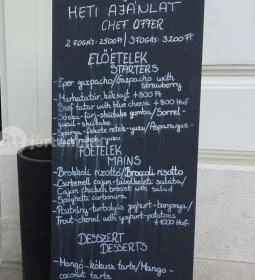 HETI AJÁNLAT
CHEF OFFER
2 FOGÁS: 2500Ft / 3 FOGÁS 3200Ft
ELŐÉTELEK
STARTERS
-Eper gazpacho/Gazpacho with
strawberry
-Marhatatár, kéksajt +800 Ft
Beef tatar with blue cheese +800 Huf
-Sóska-fürj-shiitake gomba/Sorrel-
quail-shiitake
-Spárga-fekete retek-yuzu/Asparagus-
black radish-yuzu
FŐÉTELEK
MAINS
-Brokkoli rizottó/Broccoli risotto
-Csirkemell cajun-távolkeleti saláta/
Cajun chicken breast with salad
Spaghetti carbonara
-Pisztráng-turbolya-joghurt-burgonya/
Trout-chervil with yoghurt-potatoes
+1000 Huf
DESSZERT
DESSERTS
-Mangó-kókusz tarte/Mango-
coconut tarte